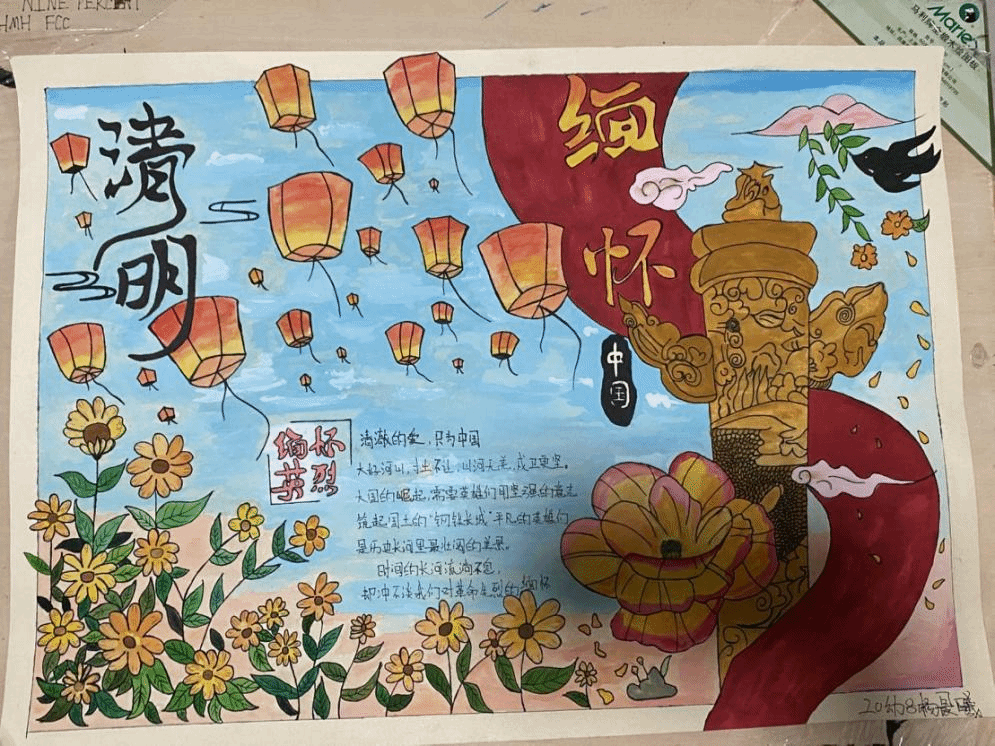 NINE PERCENT
HMH FCC
Marie's
清明
缅怀
中国
缅怀
英烈
清澈的爱，只为中国
大好河山，寸土不让，山河无恙，戍卫更坚。
大国的崛起，需要英雄们用坚强的意志
筑起国土的“钢铁长城”平凡的英雄们
是历史长河里最壮阔的美景。
时间的长河流淌不息，
却冲不淡我们对革命先烈的缅怀
20幼8杨晨曦